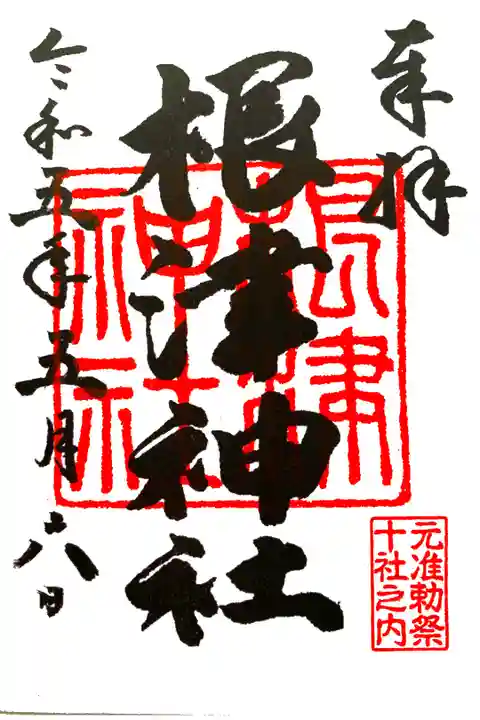 奉拝
根津神社
根津神社
令和五年五月六日
元准勅祭
十社之内